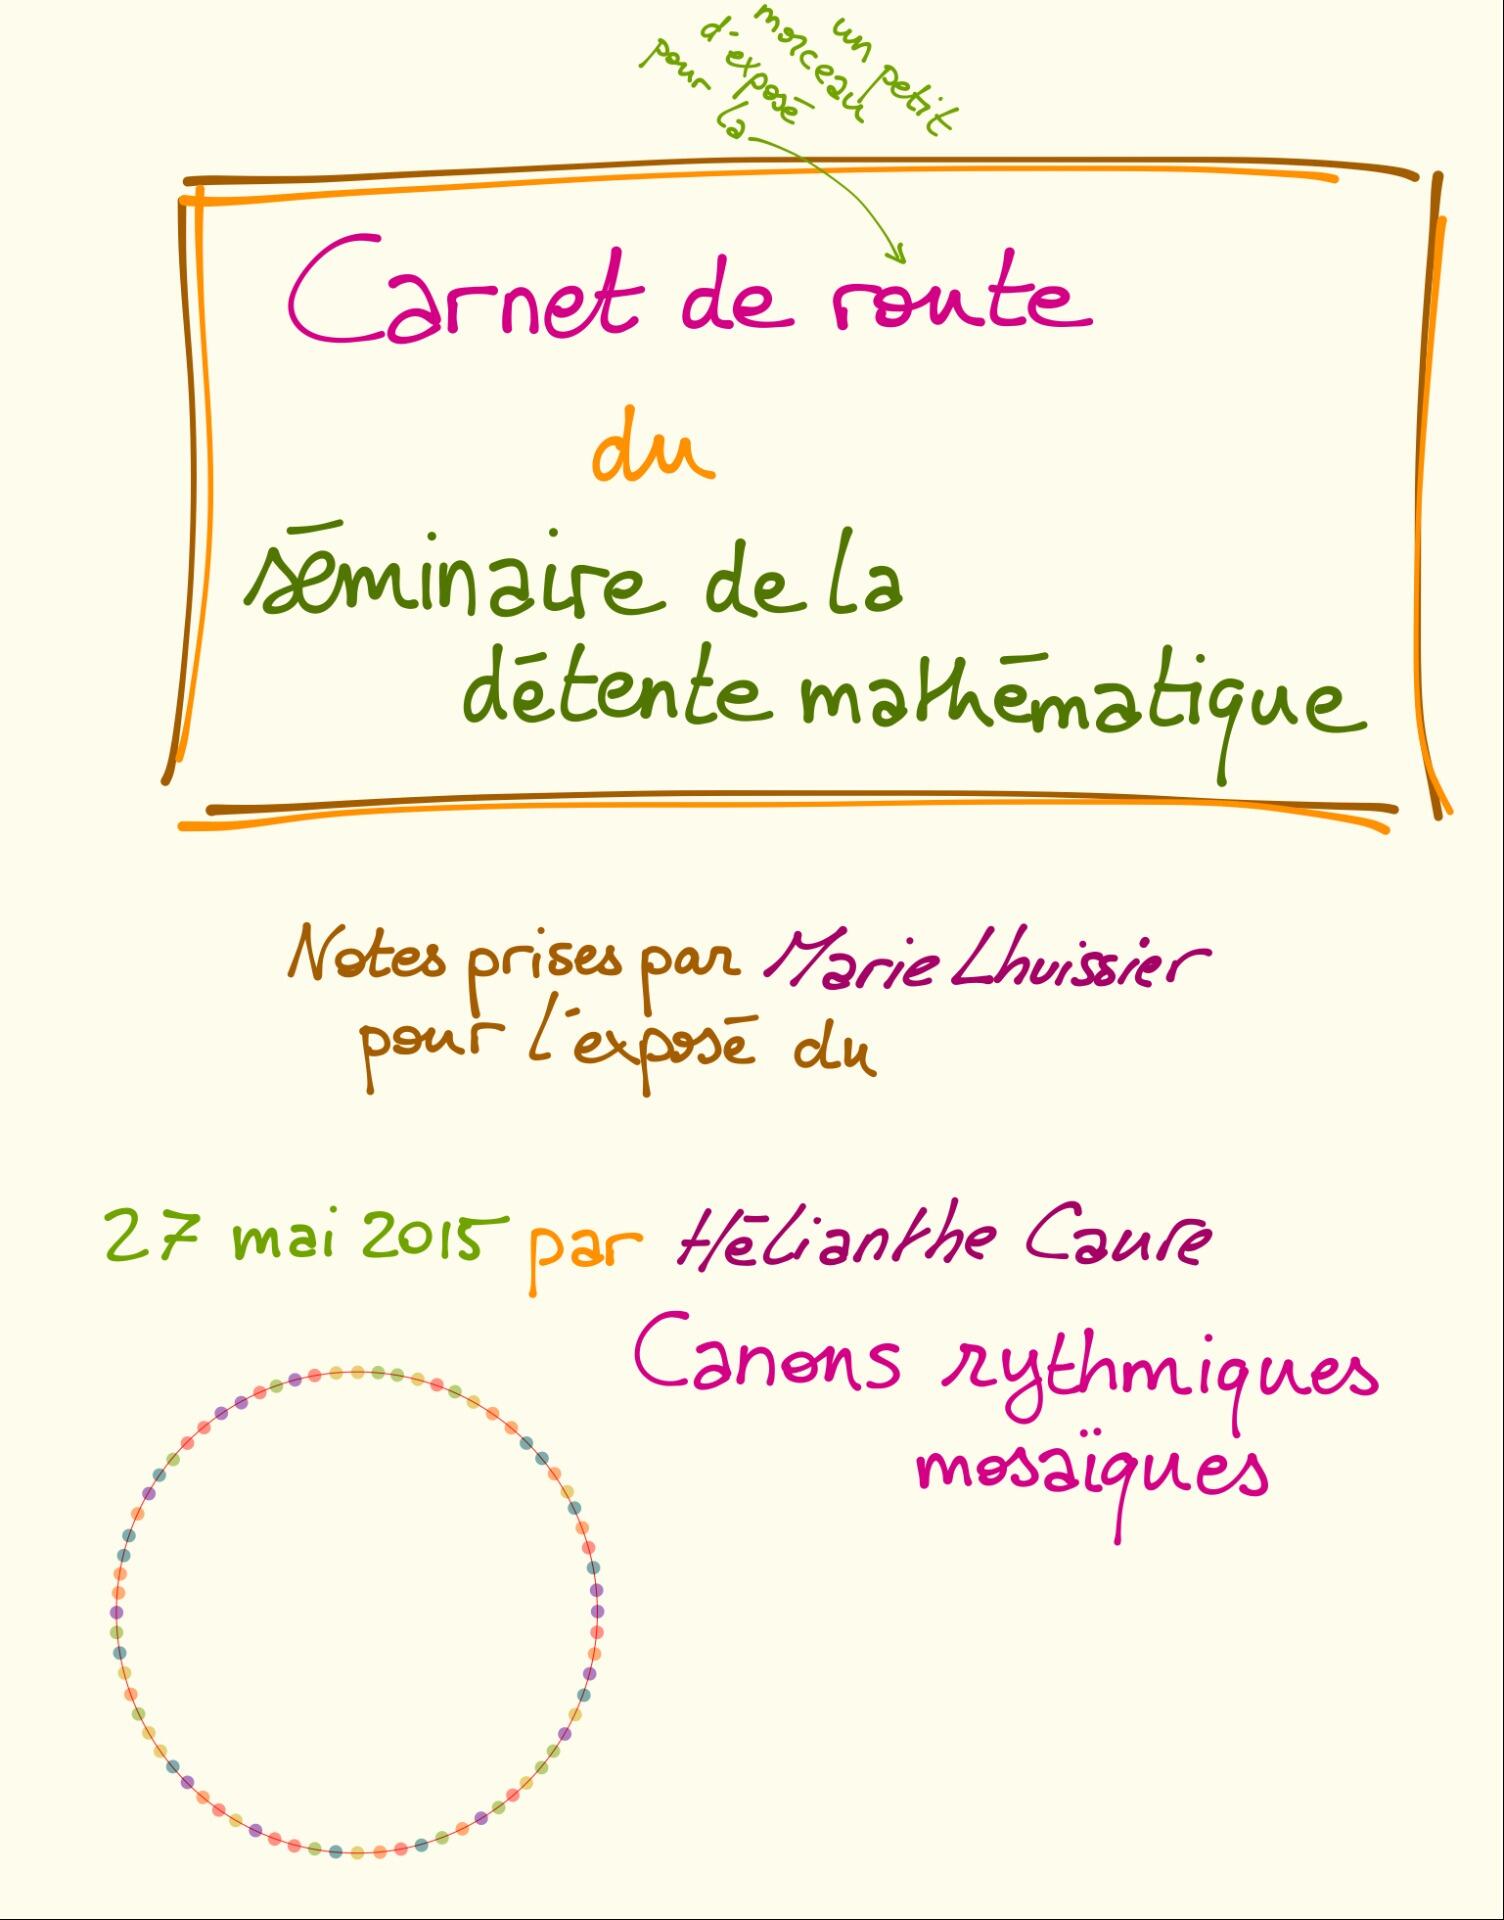 un petit
morceau
d'exposé
pour la
Carnet de route
du
séminaire de la
détente mathématique
Notes prises par Marie Lhuissier
pour l'exposé du
27 mai 2015 par Hélianthe Caure
Canons rythmiques
mosaïques